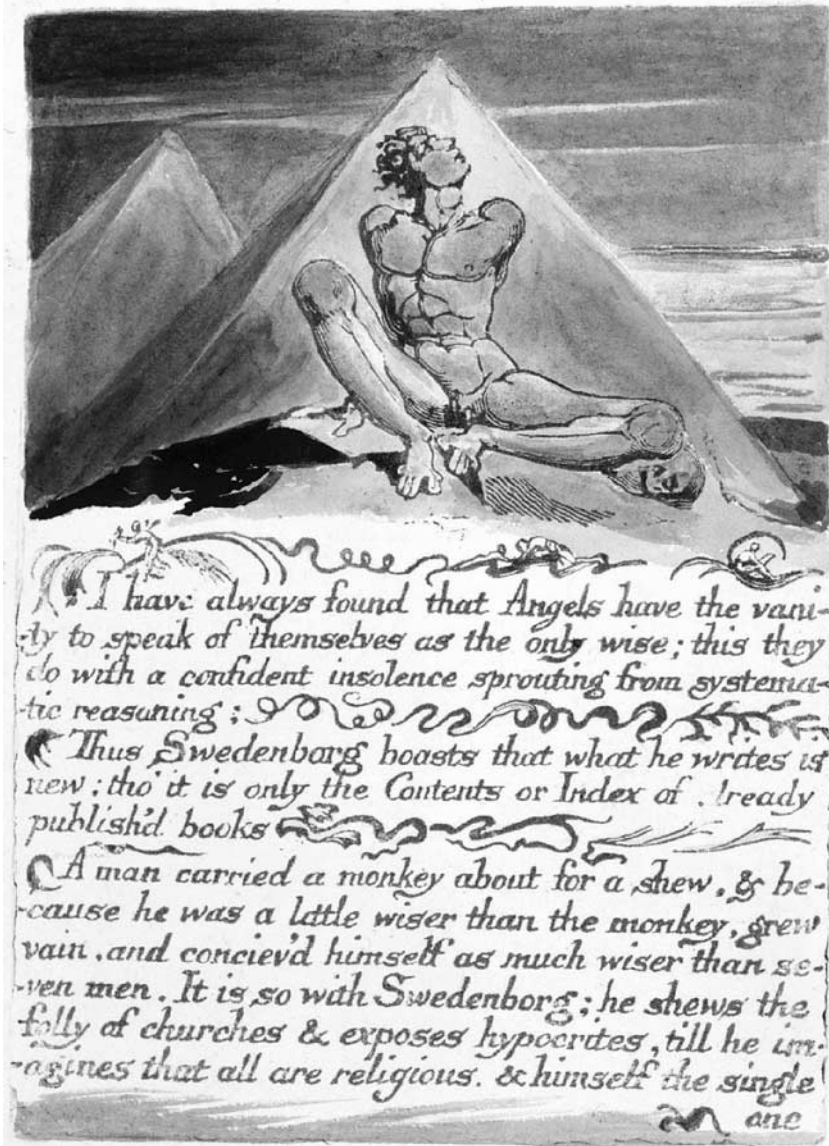 I have always found that Angels have the vani-
-ty to speak of themselves as the only wise; this they
do with a confident insolence sprouting from systema-
-tic reasoning;
Thus Swedenborg boasts that what he writes is
new; tho' it is only the Contents or Index of lready
publish'd books
A man carried a monkey about for a shew, & be-
-cause he was a little wiser than the monkey, grew
vain, and conciev'd himself as much wiser than se-
-ven men. It is so with Swedenborg; he shews the
folly of churches & exposes hypocrites, till he im-
-agines that all are religious. & himself the single
one